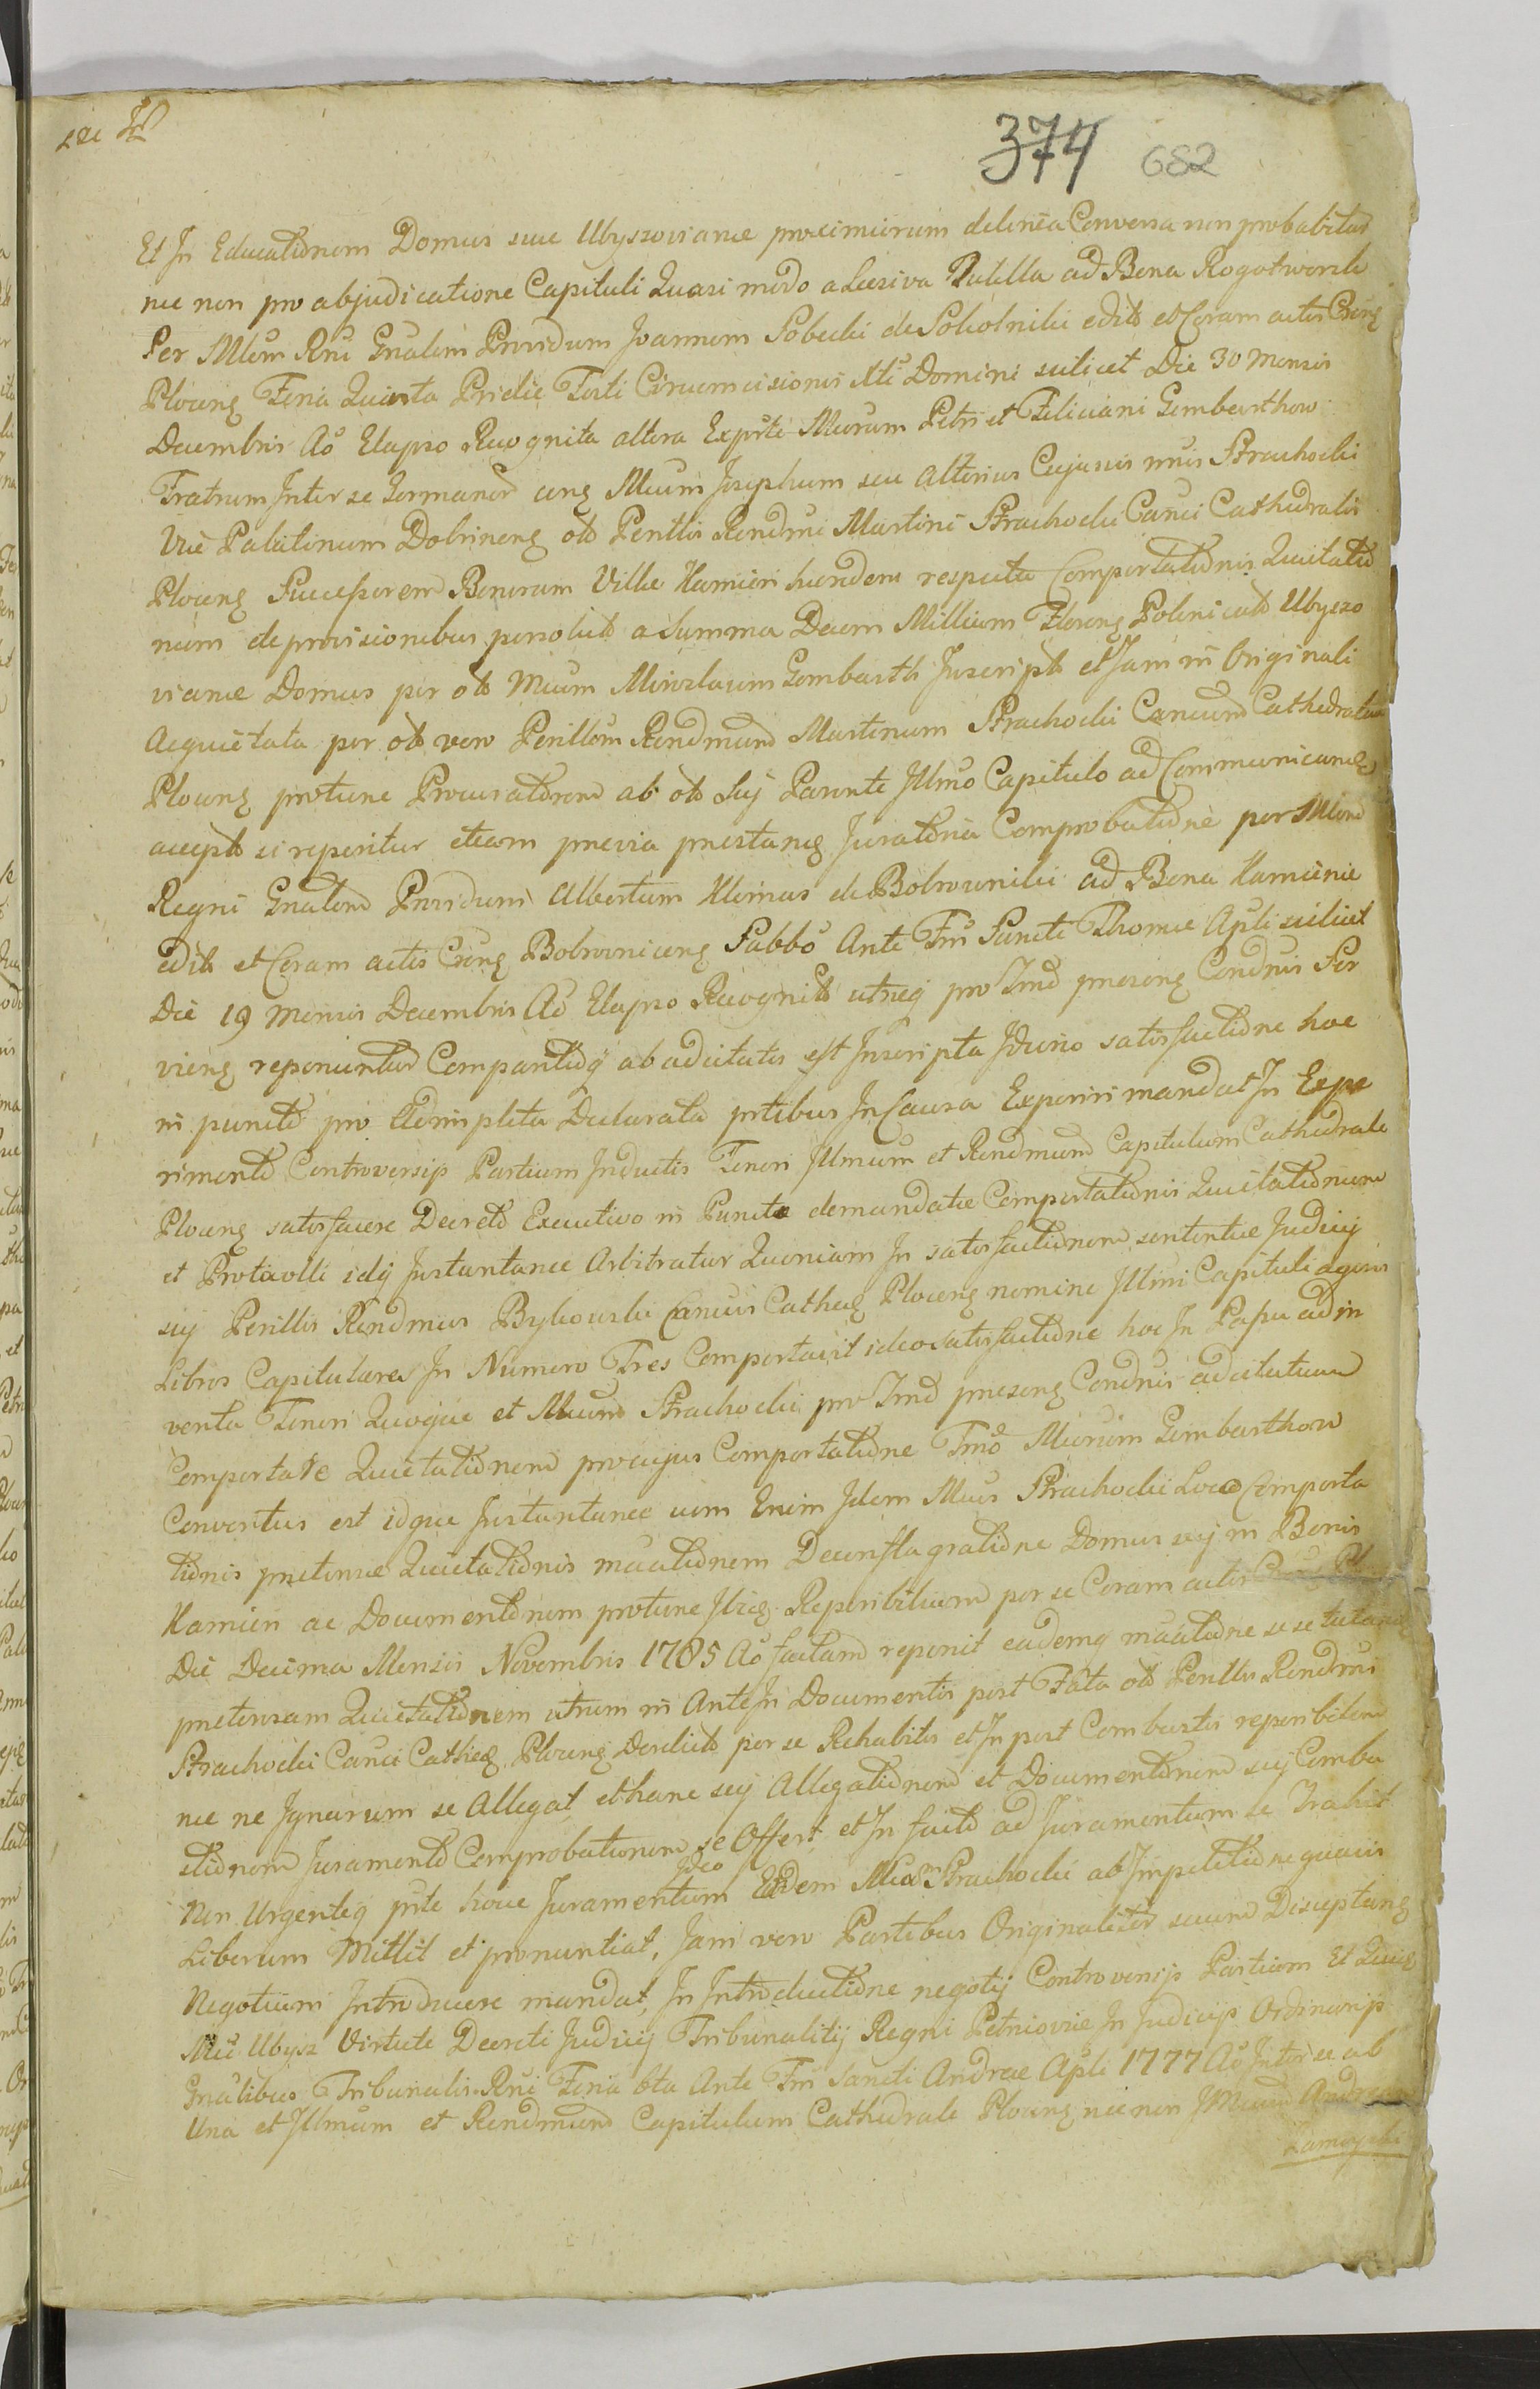 374 682
Et In Educationem Domus suae Ubyszovianae proximiorum delinea Conversa non probabitur
nec non pro abjudicatione Capituli Quasi modo a Laesiva Tutella ad Bona Rogotworsk
Per Mlem Rni Gnalem Prvidum Joannem Sobecki de Sokolniki edit et Coram actis Cseng
Ploceng Feria Quinta Pridie Festi Circumcisionis Xti Domini scilicet Die 30 Mensis
Decembris Ao Elapso Recognita altera Exprte Mcorum Petri et Feliciani Gembarthow
Fratrum Inter se Germanor ceng Mcum Josephum seu alterius Cujusvis nnis Strachocki
Vice Palatinum Dobrineng olt Perillis Rendmi Martini Strachocki Canci Cathedralis
Ploceng Successorem Bonorum Villae Kamien haeredem respectu Comportationis Quietatio
num de provisionibus persolut a Summa Decem Millium Floreng Polonicalt Ubyszo
vianae Domus per olt Mcum Miroslaum Gembarth Inscript et Jam in Originali
Acquietata per olt vero Perillem Rendmum Martinum Strachocki Cancum Cathedralem
Ploceng protunc Procuratorem ab olt Sui Parente Illmo Capitulo ad Communicandg
accept si reperitur etiam praevia praestang Juratoria Comprobatione per Mlem
Regni Gnalem Prvidum Albertum Klimas de Bobrowniki ad Bona Kamienie
edit et Coram actis Cseng Bobrowniceng Sabbo Ante Fm Sancti Thomae Apli scilicet
Die 19 Mensis Decembris Ao Elapso Recognit utrieq pro Tmo praeseng Condnis Ser
vieng reponuntur Comparitioq ab adcitatis est Inscripta Iudicio satisfactione hac
in puncto pro Adimpleta Declarata prtibus In Causa Experiri mandat In Expe
rimento Controversiis Partium Inductis Teneri Illmum et Rendmum Capitulum Cathedrale
Ploceng satisfacere Decreto Executivo in Puncto demandatae Comportationis Quietationum
et Protocolli idq Instantaneae Arbitratur Quoniam In satisfactionem sententiae Judicij
sui Perillis Rendmus Bykowski Cancus Catheg Ploceng nomine Illmi Capituli agens
Libros Capitulares In Numero Tres Comportavit ideo satisfactione hoc In Passu adin
venta Teneri Quoque et Mcum Strachocki pro Tmo praeseng Condnis adcitatum
Comportare Quietationem pro cujus Comportatione Tmo Mcorum Gembarthow
Conventus est idque Instantanee cum Enim Idem Mcus Strachocki Loco Comporta
tionis praetensae Quietationis mationem Deconflagratione Domus sui in Bonis
Kamien ac Documentorum protunc Ibieg Reperibilium per se Coram actis
Die Decima Mensis Novembris 1785 Ao factam reponit eademq matione se se tutang
praetensam Quietationem utrum in Ante In Documentis post Fata olt Perillis Rendmi
Strachocki Canci Catheg Ploceng Derelict per se Rehabitis et In post Combustis reperibilem
nec ne Ignarum se Allegat et hanc sui Allegationem et Documentorum sui Combu
stionem Juramento Comprobaturum se Offert et In facto ad Juramentum se Trahit
Non Urgenteq prte hocce Juramentum Ideo Eundem Mcum Strachocki ab Impetitione quavis
Liberum Mittit et pronuntiat, Jam vero Partibus Originaliter secum Disceptang
Negotium Introducere mandat, In Introductione negotij Controversiis Partium Et Quieg
Mci Ubysz Virtute Decreti Judicij Tribunalitij Regni Petricoviae In Judiciis Ordinariis
Gnalibus Tribunalis Rni Feria 6ta Ante Fm Sancti Andreae Apli 1777 Ao Inter se ab
Una et Illmum et Rendmum Capitulum Cathedrale Ploceng nec non IMcum Andream
Zamoyski